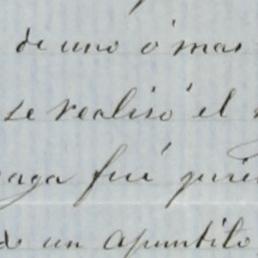 de uno ó mas
se realisó el
paga fué quie
do un apuntito